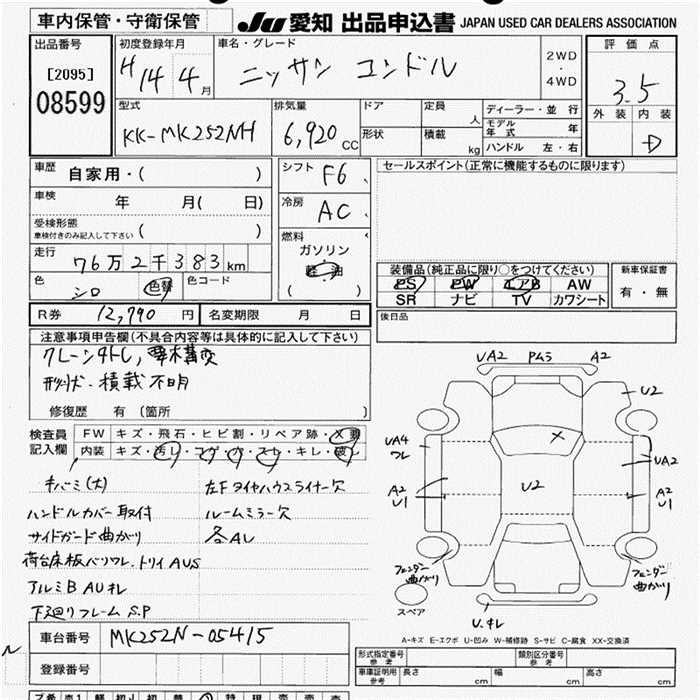 車内保管・守衛保管
JU 愛知 出品申込書 JAPAN USED CAR DEALERS ASSOCIATION
出品番号
[2095]
08599
初度登録年月
H 14 4月
車名・グレード
ニッサン コンドル
2WD
・
4WD
評価点
3.5
外装 内装
D
型式
KK-MK252NH
排気量
6,920 CC
ドア
定員
人
形状
積載
kg
ディーラー・並行
モデル年式 年
ハンドル 左・右
車歴 自家用・( )
車検 年 月( 日)
受検形態
車検付きのみ記入して下さい ( )
走行
76万2千383km
色
シロ
色替
色コード
シフト F6
冷房 AC
燃料
ガソリン
軽油
( )
R券 12,790円
名変期限 月 日
セールスポイント(正常に機能するものに限ります)
装備品(純正品に限り○をつけてください)
PS PW エアB AW
SR ナビ TV カワシート
新車保証書
有・無
後日品
注意事項申告欄(不具合内容等は具体的に記入して下さい)
形状・積載不明
修復歴 有(箇所 )
検査員記入欄
FW キズ・飛石・ヒビ割・リペア跡・X要
内装 キズ・汚レ・コゲ・穴・スレ・キレ・破レ
キバミ(大)
左Fタイヤハウスライナー欠
ハンドルカバー取付
ルームミラー欠
サイドガード曲がり
各AU
荷台床板バリワレ、トイAUS
アルミB AUキレ
下廻りフレームS.P
車台番号 MK252N-05415
登録番号
UA2 PムラA2
U2
UA4
ワレ
UA2
A2
U1
U2
A2
U1
フェンダー曲がり
フェンダー曲がり
スペア
U.キレ
A-キズ E-エクボ U-凹み W-補修跡 S-サビ C-腐食 XX-交換済
型式指定番号
参考
類別区分番号
参考
車庫証明用
参考
長さ cm
幅 cm
高さ cm